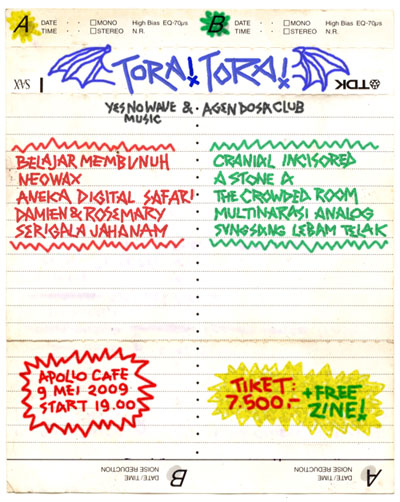 A DATE TIME □MONO □STEREO High Bias EQ-70µs N.R.
B DATE TIME □MONO □STEREO High Bias EQ-70µs N.R.
SAX
TORA! TORA!
TDK
YES NO WAVE & AGENDOSA CLUB
MUSIC
BELAJAR MEMBUNUH
NEOWAX
ANEKA DIGITAL SAFARI
DAMIEN & ROSEMARY
SERIGALA JAHANAM
CRANIAL INCISORED
A STONE A
THE CROWDED ROOM
MULTINARASI ANALOG
SUNGSANG LEBAM TELAK
APOLLO CAFE
9 MEI 2009
START 19.00
TIKET:
7.500.-
+FREE
ZINE!
B DATE/TIME
NOISE REDUCTION
A DATE/TIME
NOISE REDUCTION